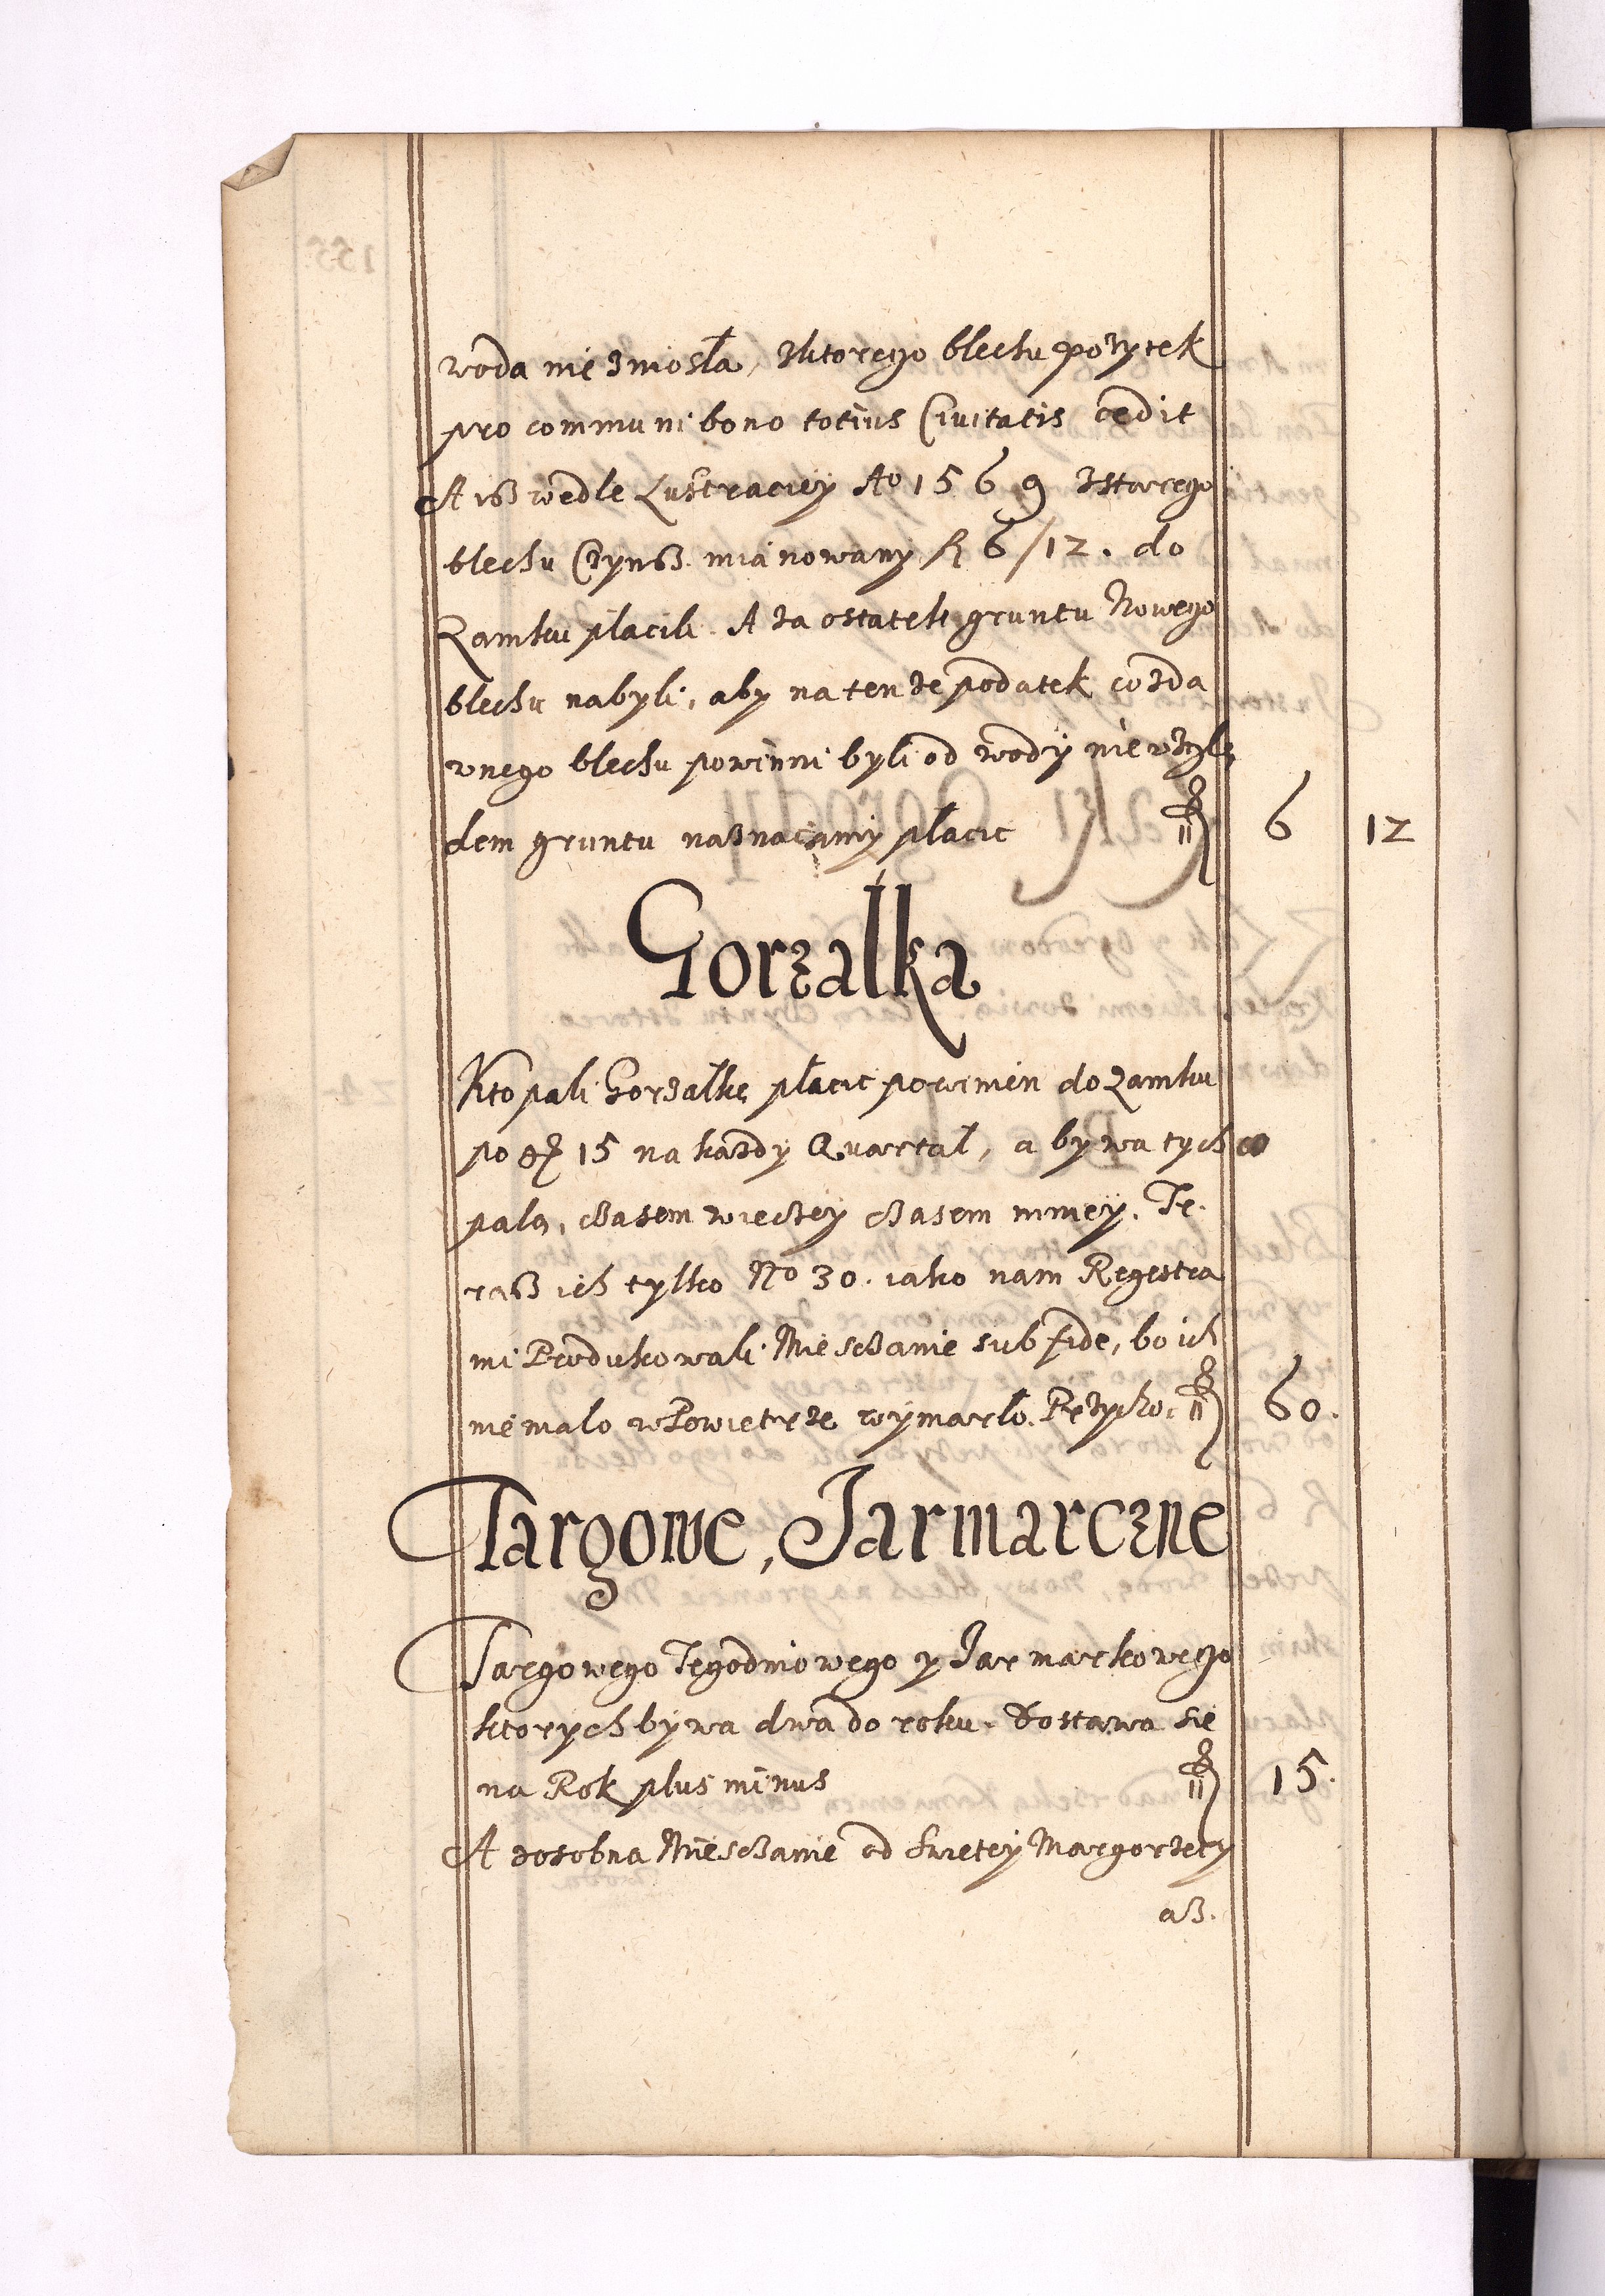 woda nie zniosła, zktorego blechu pozytek
pro communi bono totius Civitatis cedit
A iß wedle Lustraciey Ao 1569 zstarego
blechu Czynß mianowany fl 6/12. do
Zamku płacili. A za ostatek gruntu Nowego
blechu nabyli, aby na ten ze podatek co zda
wnego blechu powinni byli od wody nie wzglę
dem gruntu naßnaczamy płacic 6 12
Gorzałka
Kto pali Gorzałkę płacic powinien do Zamku
po g 15 na kazdy Quartał, a bywa tych co
palą, czasem wieczey czasem mniey. Te-
raß ich tylko No 30. iako nam Regestra
mi Produkowali Miesczanie sub fide, bo ich
niemalo w Powietrze wymarlo. 60.
Targowe, Jarmarczne
Targowego Tegodniowego y Jarmarkowego
ktorych bywa dwa do roku. Dostawa się
na Rok plus minus 15.
A zosobna Miesczanie od Swietey Margorzety
aß.